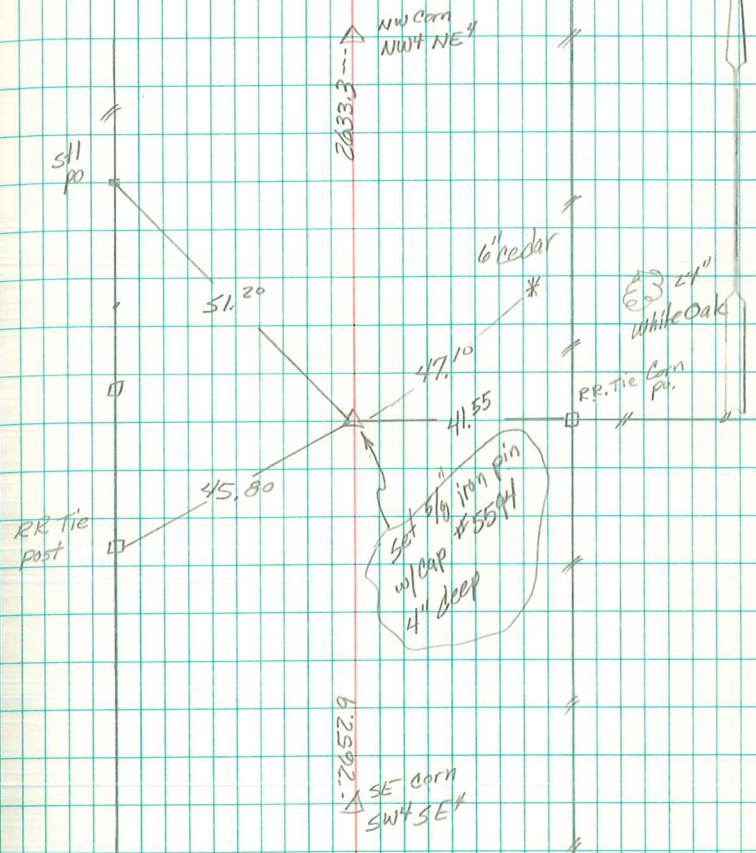 NW Corn
NW4 NE4
2633.3
stl
po
6" cedar
24"
White Oak
51.20
47.10
41.55
RR. Tie Corn
po.
45.80
RR Tie
post
Set 5/8" iron pin
w/cap #5594
4" deep
2652.9
SE Corn
SW4 SE4